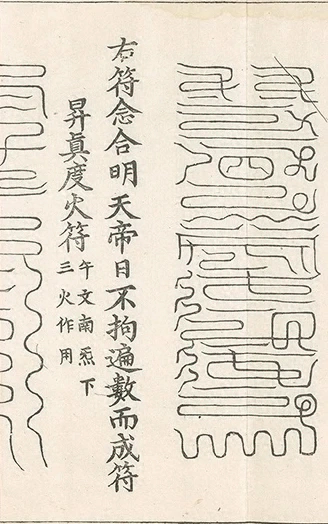 右符念合明天帝日不拘遍數而成符
昇眞度火符
午文南炁下
三火作用